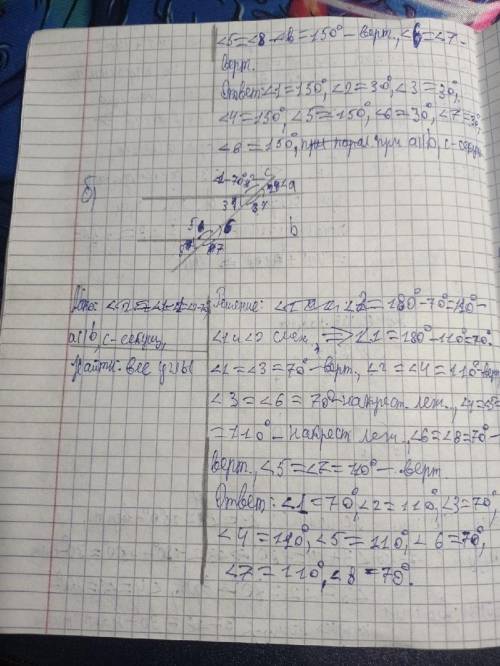 ∠5=∠8 ∠6=150° – верт., ∠6=∠7 –
верт.
Ответ: ∠1=150°, ∠2=30°, ∠3=30°,
∠4=150°, ∠5=150°, ∠6=30°, ∠7=30°,
∠8=150°, при a||b, c-секущ.
б)
a
b
Дано:
a||b, c-секущ,
Найти: все углы
Решение: ∠2=180°-70°=110° –
∠1 и ∠2 смеж., => ∠1=180°-110°=70°.
∠1=∠3=70° – верт., ∠2=∠4=110° – верт
∠3=∠6=70° – накрест леж., ∠4=∠5=
=110° – накрест леж., ∠6=∠8=70° –
верт., ∠5=∠7=110° – верт.
Ответ: ∠1=70°, ∠2=110°, ∠3=70°,
∠4=110°, ∠5=110°, ∠6=70°,
∠7=110°, ∠8=70°.